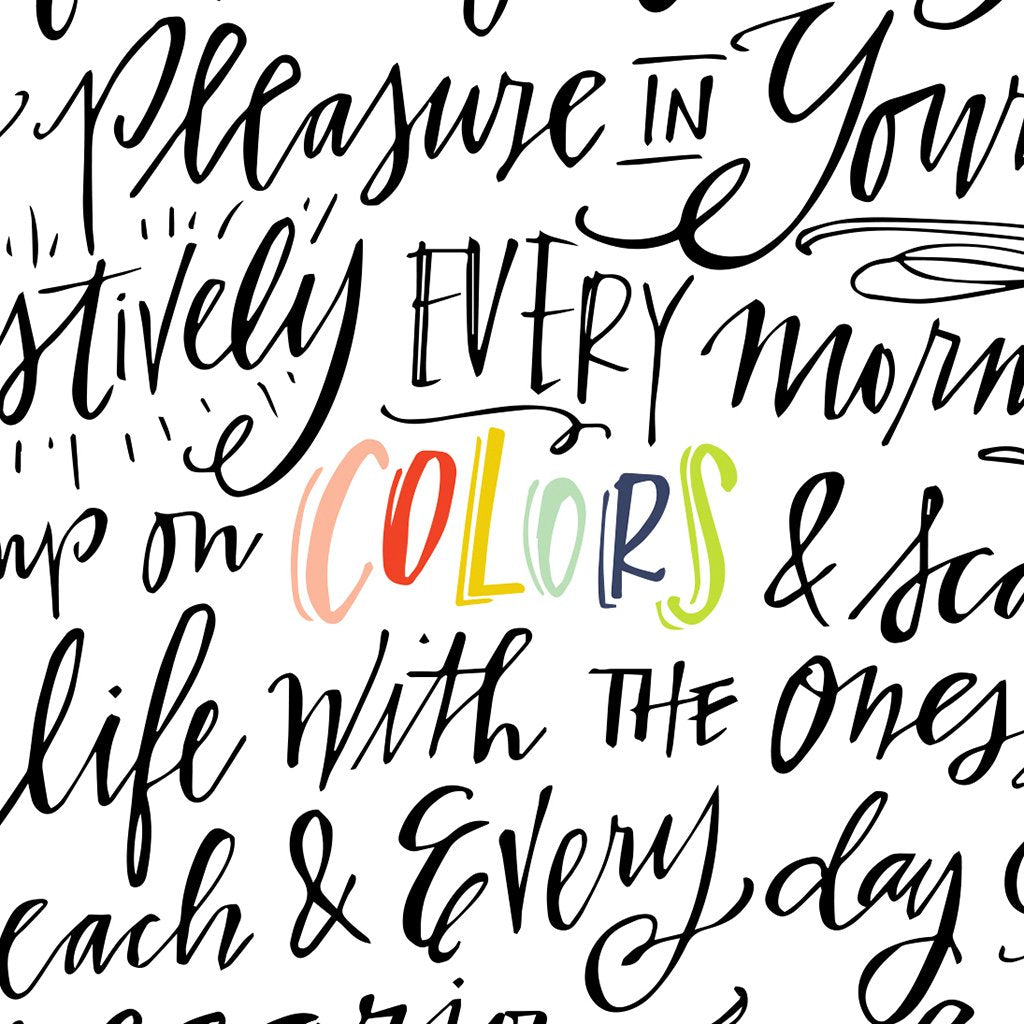 Pleasure IN your
stively EVERY morn
mp on COLORS & sca
life with THE ones
each & Every day